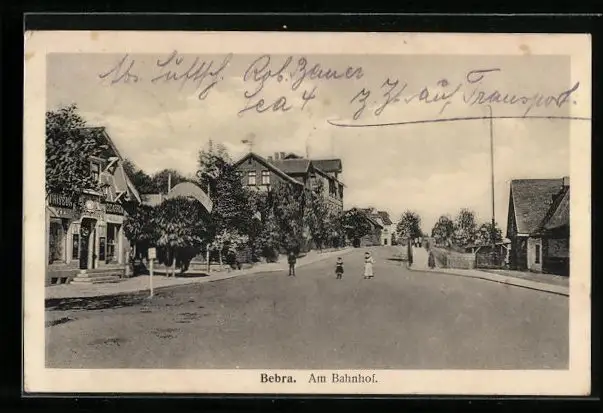 Abs. Luftsch. Rob. Bauer
z. Zt. auf Transport
Bebra. Am Bahnhof.